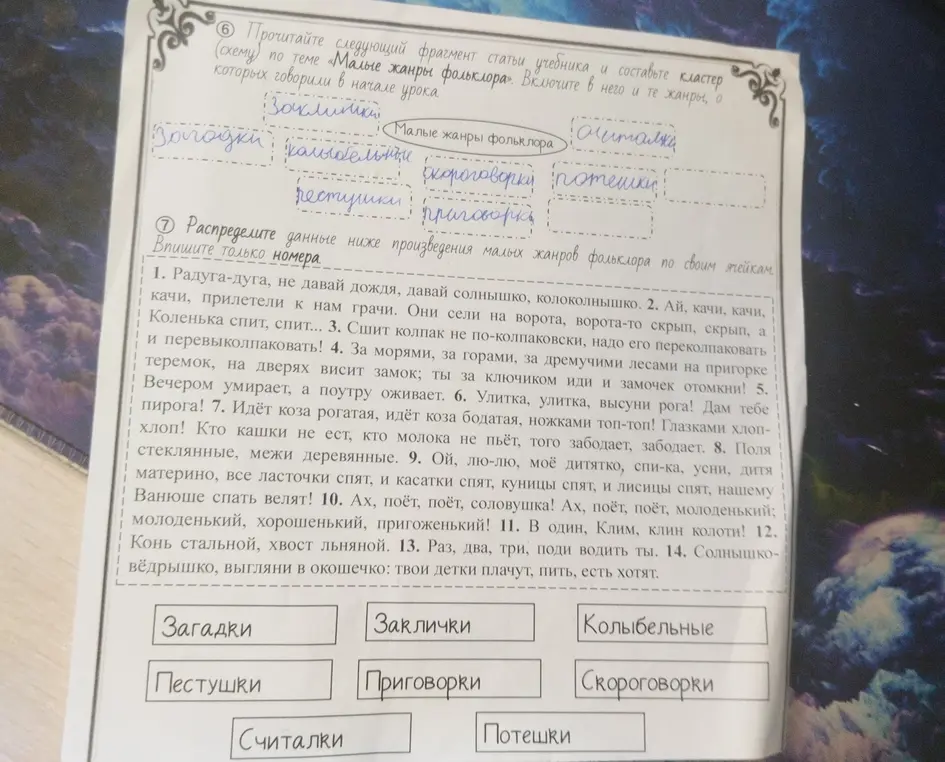 ⑥ Прочитайте следующий фрагмент статьи учебника и составьте кластер
(схему) по теме «Малые жанры фольклора». Включите в него и те жанры, о
которых говорили в начале урока.
Заклички
Малые жанры фольклора
считалки
Загадки
колыбельные
скороговорки
потешки
пестушки
приговорки
⑦ Распределите данные ниже произведения малых жанров фольклора по своим ячейкам.
Впишите только номера.
1. Радуга-дуга, не давай дождя, давай солнышко, колоколнышко. 2. Ай, качи, качи,
качи, прилетели к нам грачи. Они сели на ворота, ворота-то скрып, скрып, а
Коленька спит, спит... 3. Сшит колпак не по-колпаковски, надо его переколпаковать
и перевыколпаковать! 4. За морями, за горами, за дремучими лесами на пригорке
теремок, на дверях висит замок; ты за ключиком иди и замочек отомкни! 5.
Вечером умирает, а поутру оживает. 6. Улитка, улитка, высуни рога! Дам тебе
пирога! 7. Идёт коза рогатая, идёт коза бодатая, ножками топ-топ! Глазками хлоп-
хлоп! Кто кашки не ест, кто молока не пьёт, того забодает, забодает. 8. Поля
стеклянные, межи деревянные. 9. Ой, лю-лю, моё дитятко, спи-ка, усни, дитя
материно, все ласточки спят, и касатки спят, куницы спят, и лисицы спят, нашему
Ванюше спать велят! 10. Ах, поёт, поёт, соловушка! Ах, поёт, поёт, молоденький;
молоденький, хорошенький, пригоженький! 11. В один, Клим, клин колоти! 12.
Конь стальной, хвост льняной. 13. Раз, два, три, поди водить ты. 14. Солнышко-
вёдрышко, выгляни в окошечко: твои детки плачут, пить, есть хотят.
Загадки
Заклички
Колыбельные
Пестушки
Приговорки
Скороговорки
Считалки
Потешки